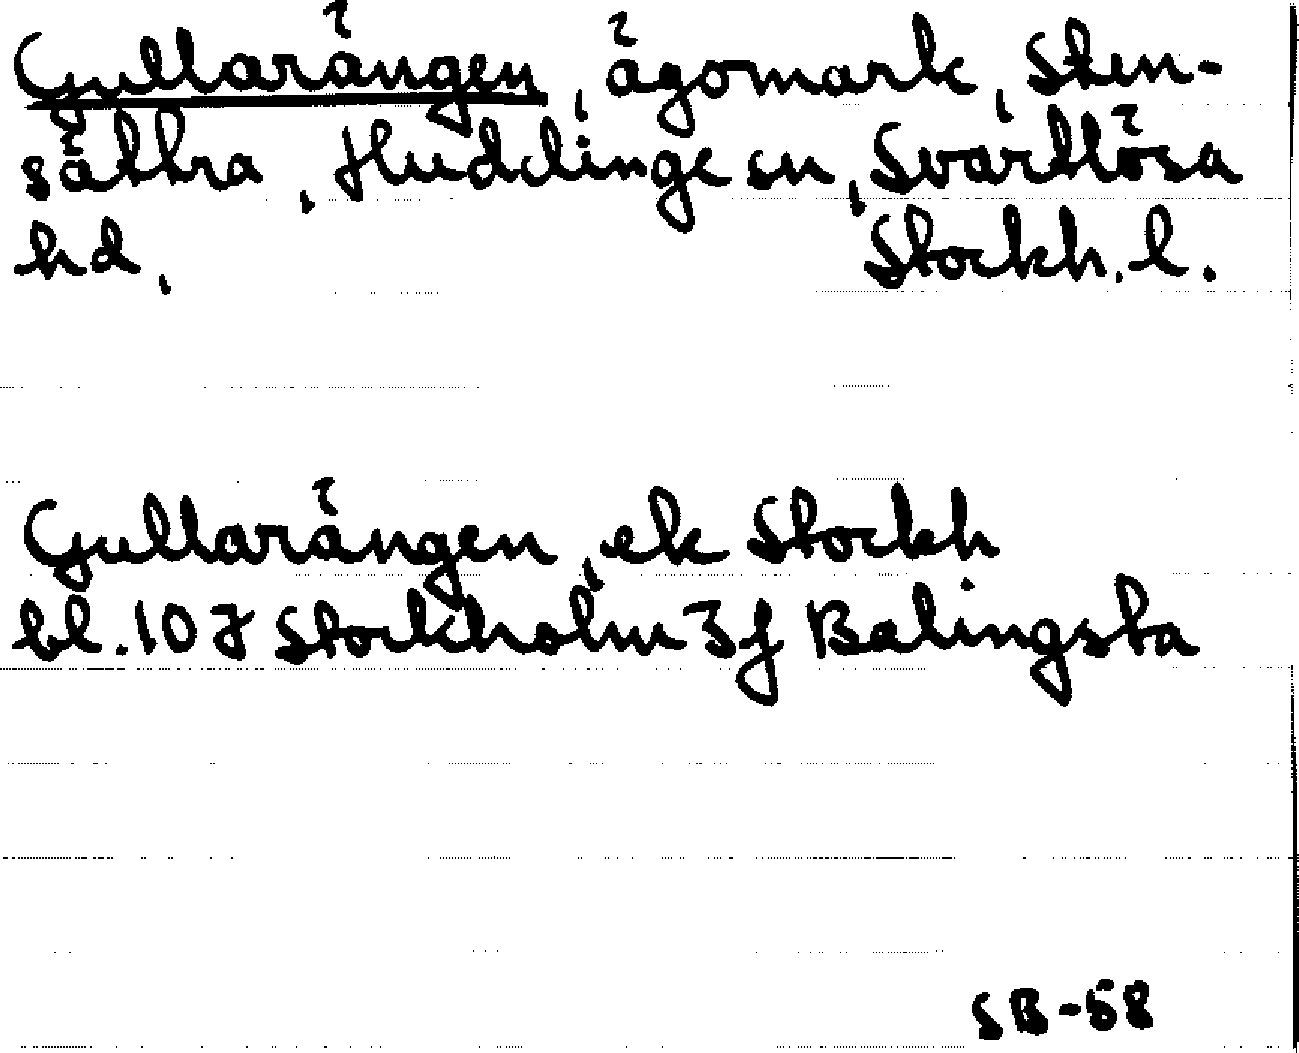 Gullarängen, ägomark, Sten-
sättra, Huddinge sn, Svartlösa
hd, Stockh. l.
Gullarängen, ek Stockh
bl. 10 J Stockholm 3 f Balingsta
SB-58